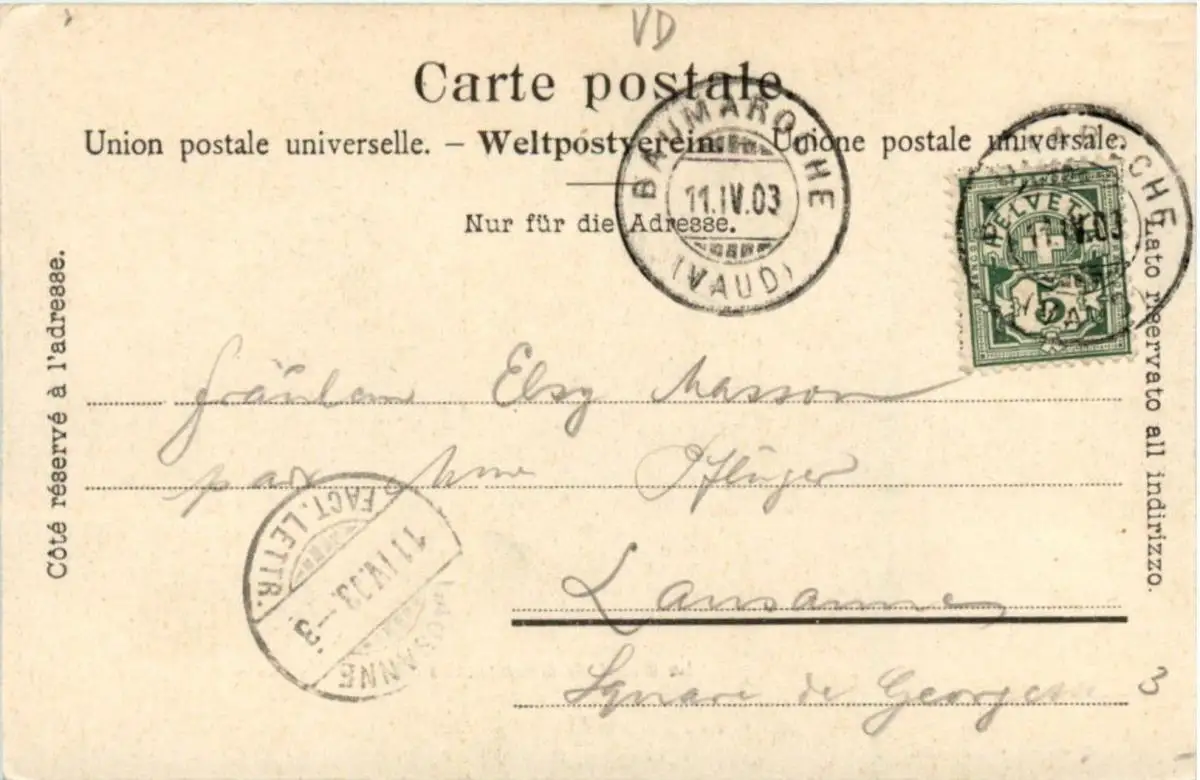 VD
Carte postale.
Union postale universelle. – Weltpostverein. – Unione postale universale.
Nur für die Adresse.
Côté réservé à l'adresse.
Lato riservato all indirizzo.
BAUMAROCHE
11.IV.03
(VAUD)
HELVETIA
5
11.IV.03
Fräulein Elsy Masson
par Mme Pflüger
Lausanne
Square de Georgette
3
LAUSANNE
11.IV.03.-3
FACT. LETTR.